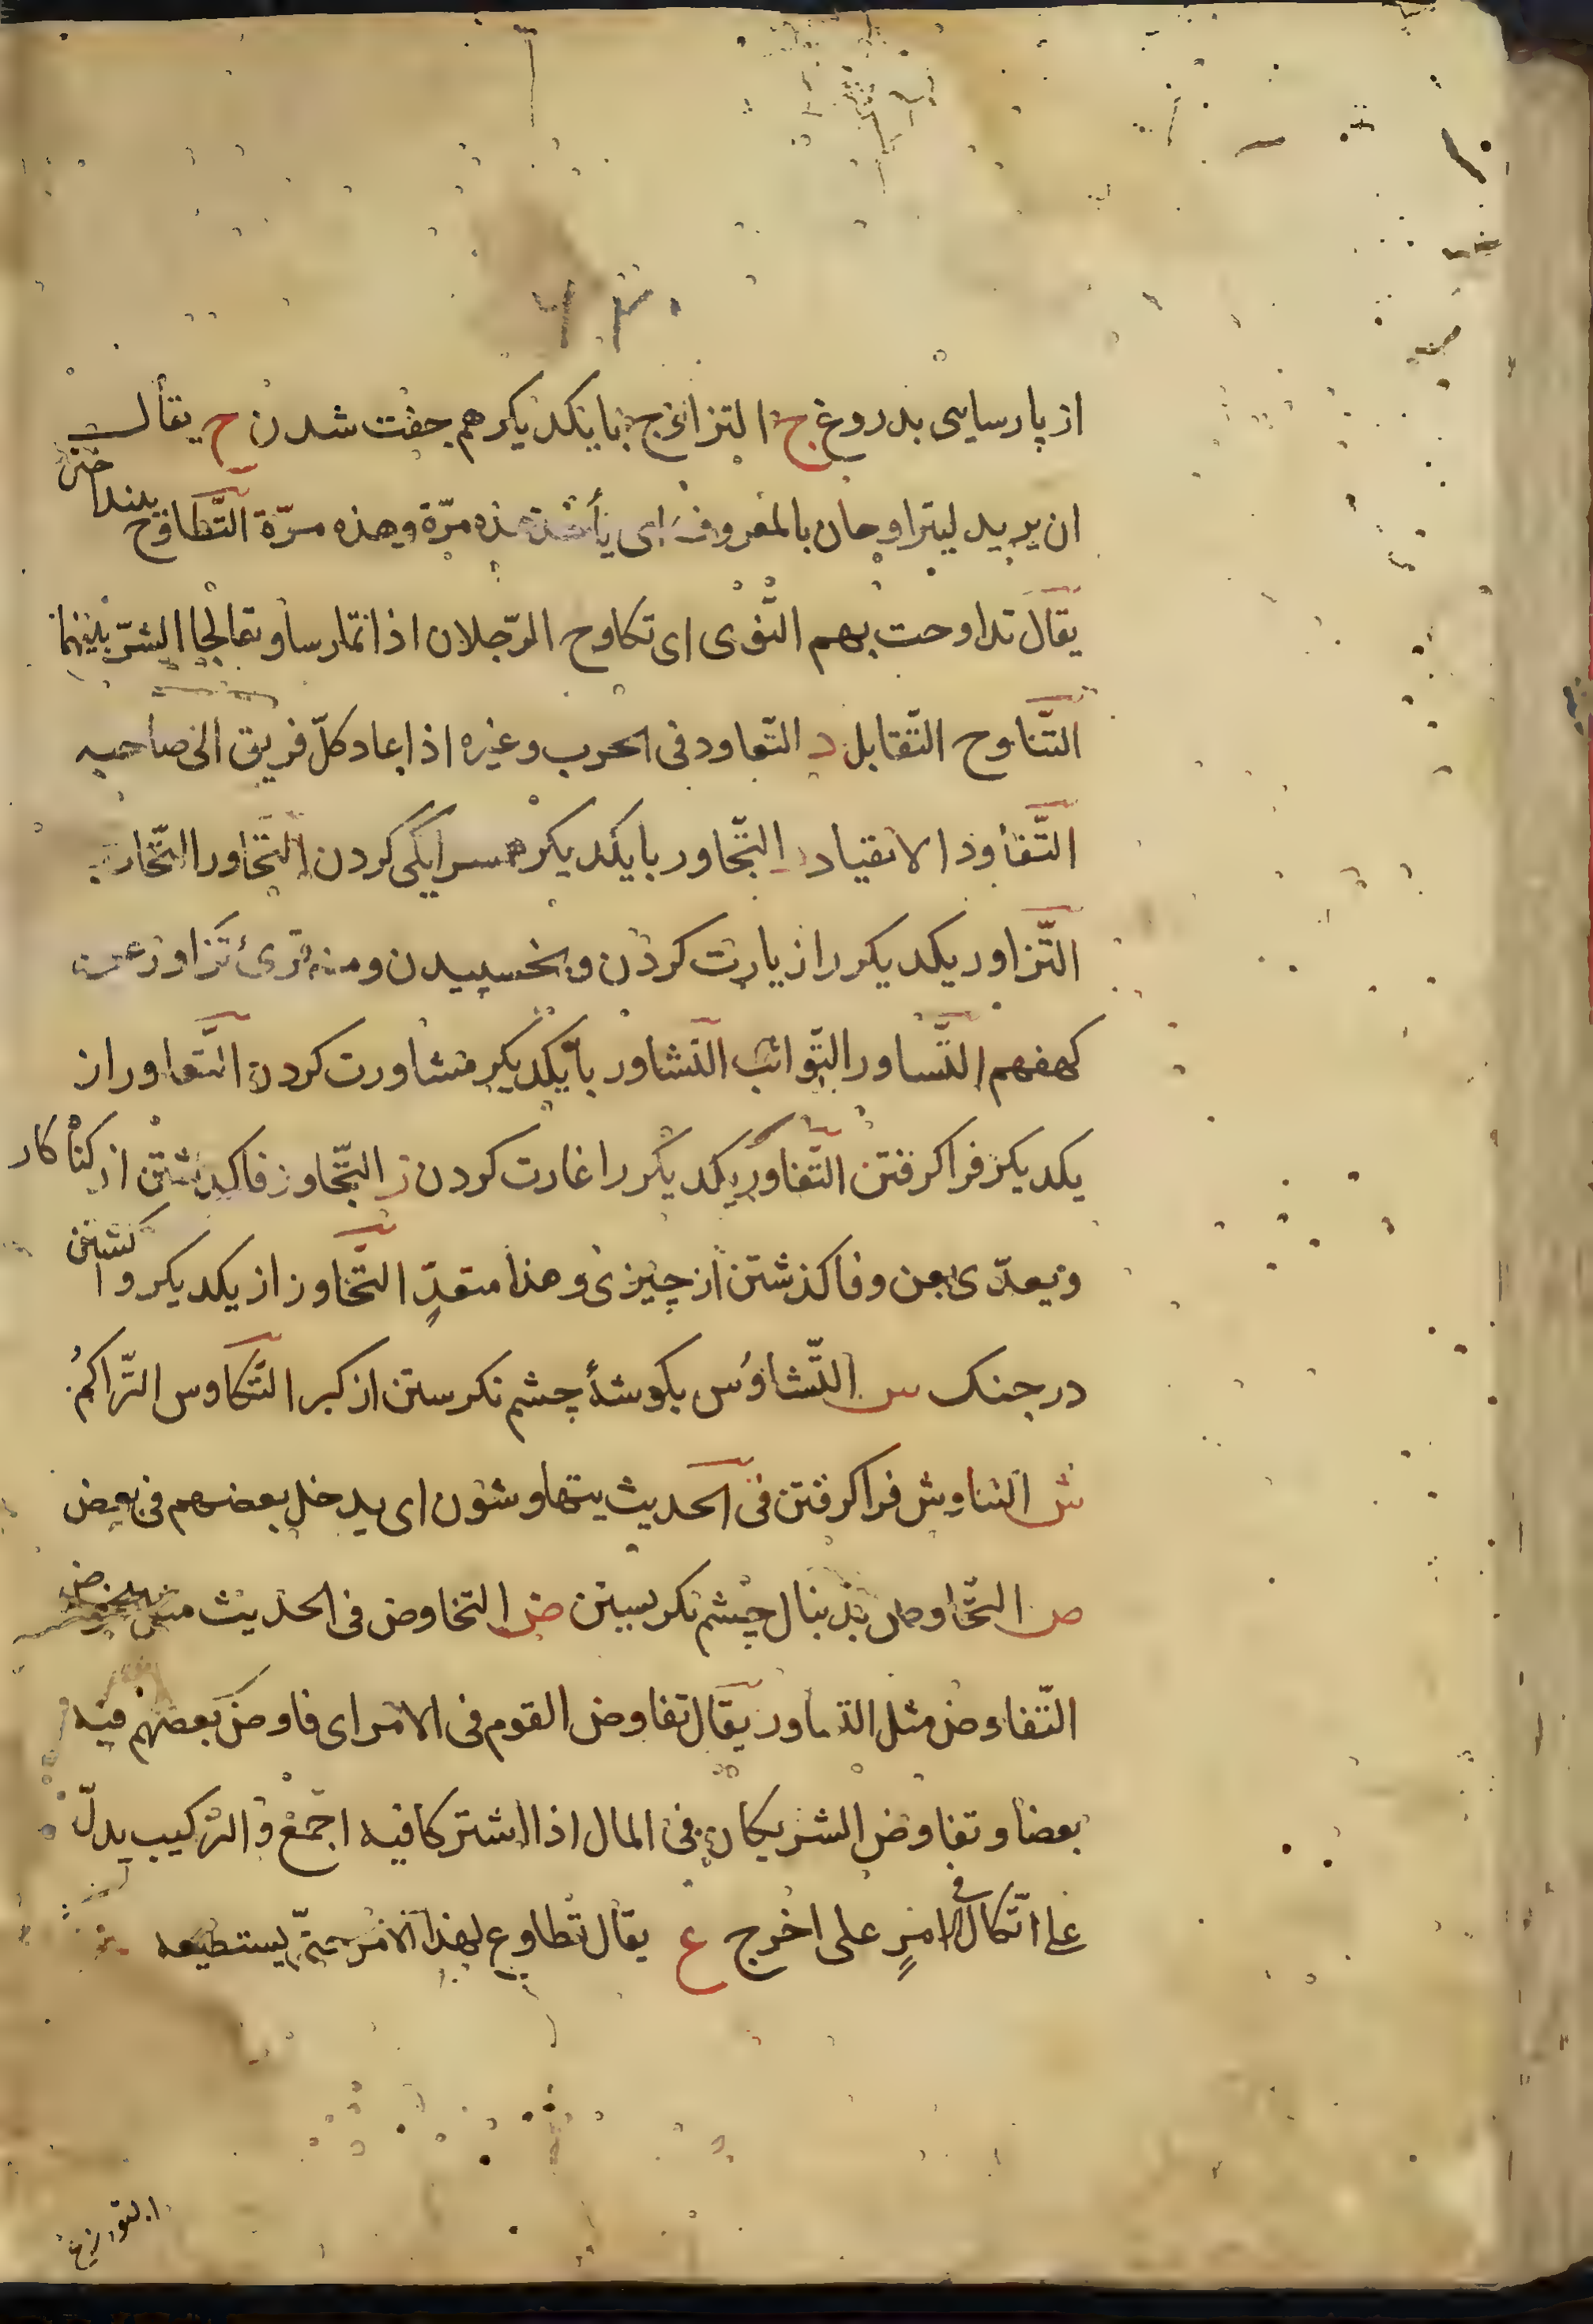 ۶۳۰
از پارسایی بدروغ ج التزاوج با یکدیکر هم جفت شدن ح یقال
ان یدیه لیتراوحان بالمعروف ای یأخذ هذه مرّة وهذه مرّة التَّطاوح بینداختن
یقال تداوحت بهم النَّوٰی ای تکاوح الرّجلان اذا تمارسا وتعالجا الشرّ بینهما
التَّناوح التّقابل د التّعاود فی الحرب وغیره اذا عاد کلّ فریق الی صاحبه
التَّقاود الانقیاد التّجاور با یکدیکر همسرایکی کردن التَّحاور التّجاوب
التَّزاور یکدیکر را زیارت کردن وبخسبیدن ومنه قرئ تزاور عن
کهفهم التَّساور التّواثب التشاور با یکدیکر مشاورت کردن التَّعاور از
یکدیکر فرا کرفتن التَّغاور یکدیکر را غارت کردن ز التّجاوز فاکذشتن از کناکار
ویعدّی بعن وفاکذشتن از چیزی وهذا متعدٍّ التَّحاوز از یکدیکر وا کشتن
در جنک س التَّشاوُس بکوشهٔ چشم نکرستن از کبر التَّکاوس التّراکمُ
ش التناوش فرا کرفتن فی الحدیث یتهاوشون ای یدخل بعضهم فی بعض
ص التّخاوص بذنبال چشم نکریستن ض التخاوض فی الحدیث من الخوض
التّفاوض مثل التّحاور یقال تفاوض القوم فی الامر ای فاوض بعضهم فیه
بعضا وتفاوض الشریکان فی المال اذا اشترکا فیه اجمع والترکیب یدلّ
علی اتّکال فی الامرٍ علی اخرج ع یقال تطاوع لهذا الامر حتّی یستطیعه